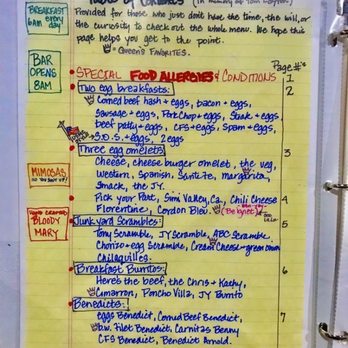 Table of Contents (In memory of Tom Hayton)
Provided for those who just don't have the time, the will, or
the curiosity to check out the whole menu. We hope this
page helps you get to the point.
= Queen's FAVORITES.
Page #'s
BREAKFAST
6AM every
day!
BAR
OPENS
8AM
MIMOSAS
BLOODY
MARY
• SPECIAL FOOD ALLERGIES & CONDITIONS 1
• Two egg breakfasts: 2
Corned beef hash + eggs, bacon + eggs,
Sausage + eggs, Pork Chop + eggs, Steak + eggs
beef patty + eggs, CFS + eggs, Spam + eggs,
S.O.S. + eggs, 2 eggs
• Three egg omelets 3
Cheese, cheese burger omelet, the veg,
Western, Spanish, Santa Fe, margarita
Smack, the JY.
Pick your Part, Simi Valley, Ca., Chili Cheese 4
Florentine, Cordon Bleu.
• Junk yard Scrambles: 5
Tony Scramble, JY Scramble, ABC Scramble
Chorizo + egg Scramble, Cream Cheese + green onion
Chilaquiles.
• Breakfast Burritos: 6
Here's the beef, the Chris + Kathy,
Cimarron, Poncho Villa, JY Burrito
• Benedicts: 7
Eggs Benedict, Corned Beef Benedict,
D.W. Filet Benedict, Carnitas Benny
CFS Benedict, Benedict Arnold.